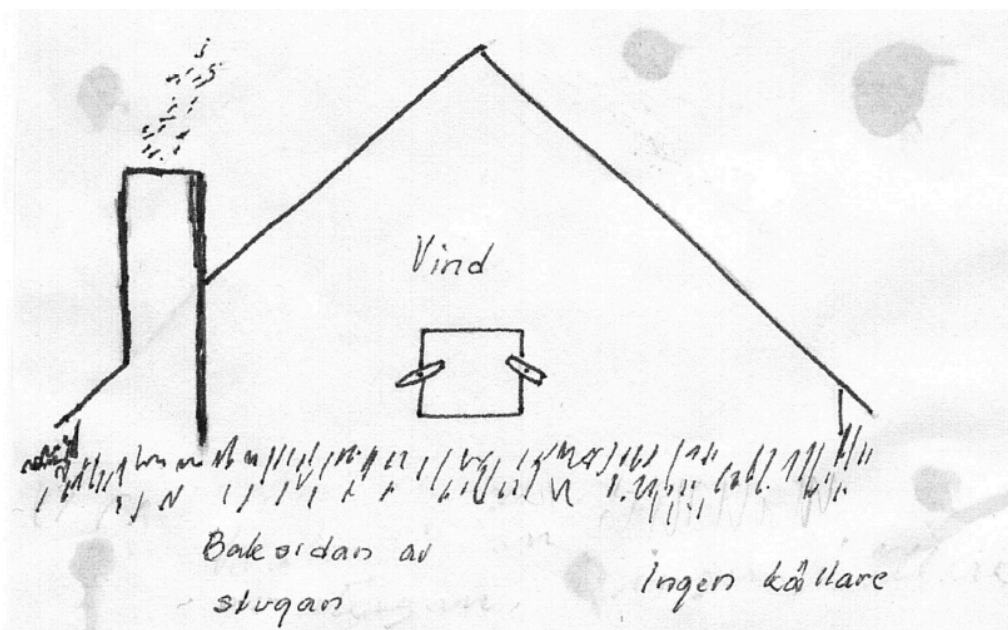 Vind
Baksidan av
stugan
Ingen källare